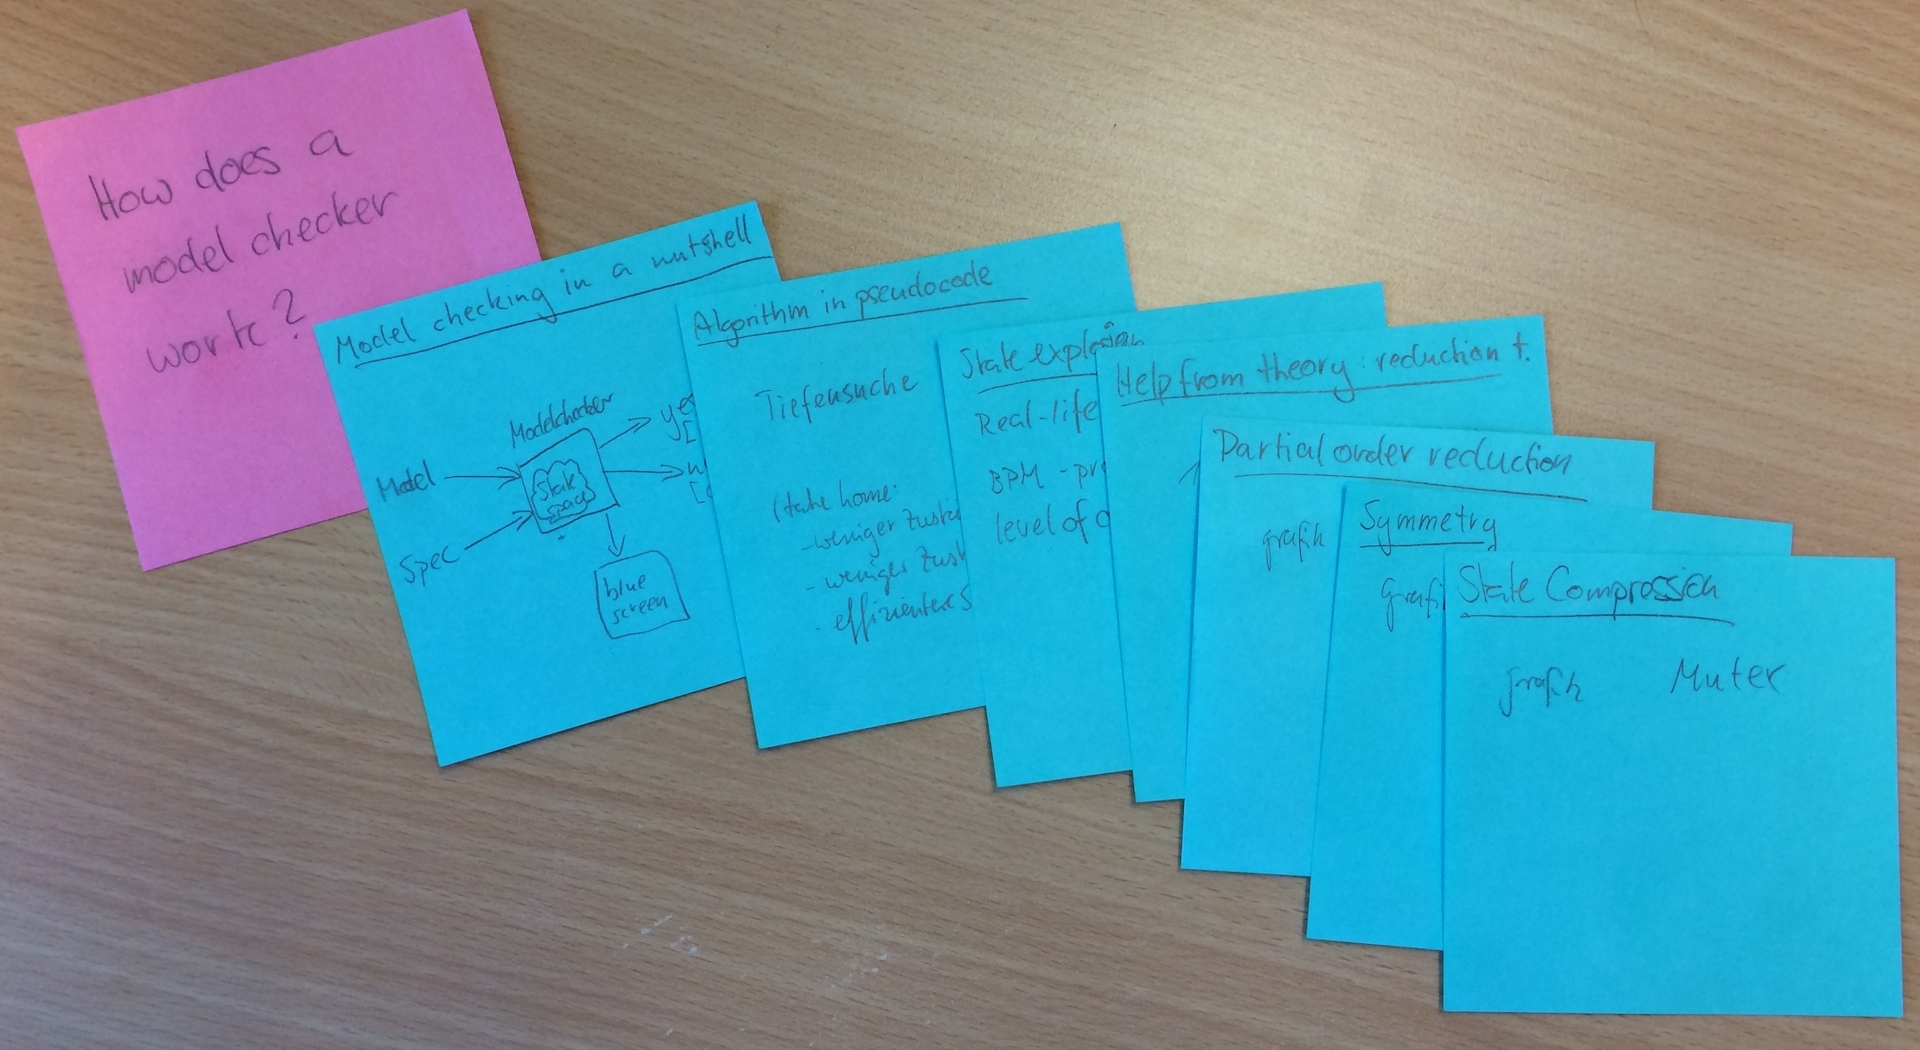 How does a
model checker
work?
Model checking in a nutshell
Modelchecker
Model
Spec
State
space
yes
[
[
blue
screen
Algorithm in pseudocode
Tiefensuche
(take home:
- weniger
- weniger
- effizientere S
State explosion
Real-life
BPM - pr
level of
Help from theory: reduction t.
Partial order reduction
grafik
Symmetry
grafi
State Compression
grafik Muter